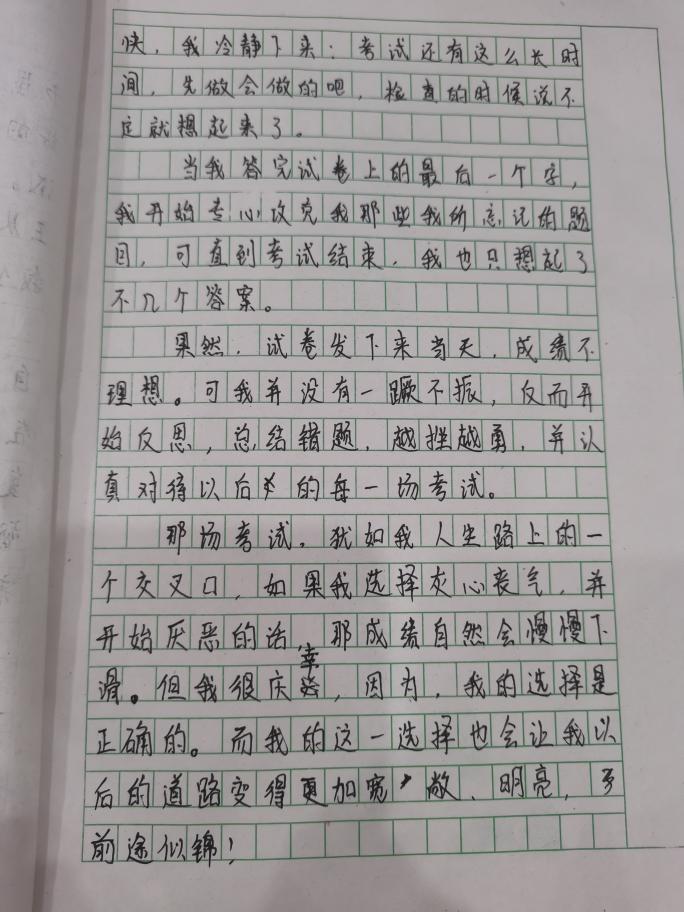 快，我冷静下来：考试还有这么长时
间，先做会做的吧，检查的时候说不
定就想起来了。
当我答完试卷上的最后一个字，
我开始专心攻克我那些我所忘记的题
目，可直到考试结束，我也只想起了
不几个答案。
果然，试卷发下来当天，成绩不
理想。可我并没有一蹶不振，反而开
始反思，总结错题，越挫越勇，并认
真对待以后的每一场考试。
那场考试，犹如我人生路上的一
个交叉口，如果我选择灰心丧气，并
开始厌恶的话，那成绩自然会慢慢下
滑。但我很庆幸，因为，我的选择是
正确的。而我的这一选择也会让我以
后的道路变得更加宽敞、明亮，
前途似锦！